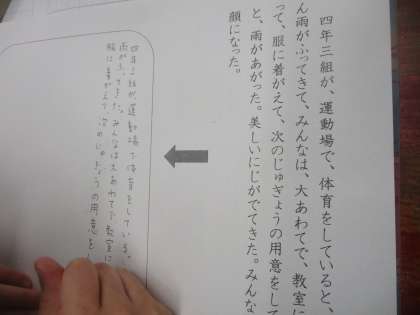 四年三組が、運動場で、体育をしていると、
ん雨がふってきて、みんなは、大あわてで、教室に
って、服に着がえて、次のじゅぎょうの用意をして
と、雨があがった。美しいにじがでてきた。みんな
顔になった。
四年三組が運動場で体育をしている。
雨がふってきた。みんなは大あわてで教室に
服に着がえて次のじゅぎょうの用意をし